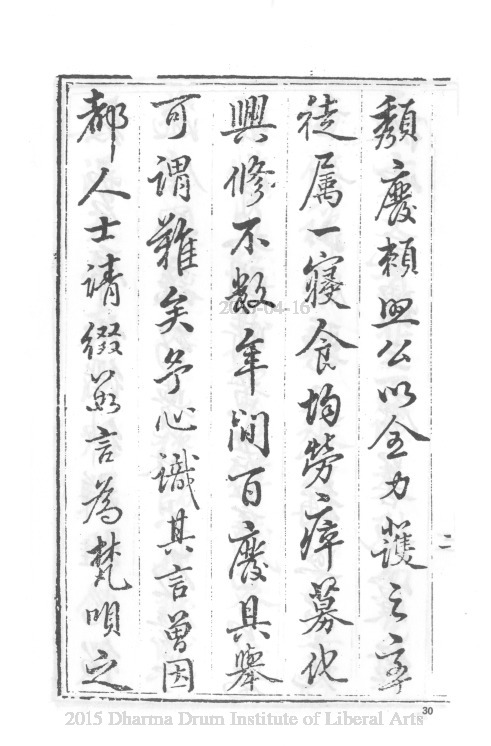 頹廢賴盟公以全力護之率
徒屬一寢食均勞瘁募化
興修不數年間百廢具舉
可謂難矣予心識其言曾因
都人士請綴蕪言為梵唄之
二
30
2015 Dharma Drum Institute of Liberal Arts